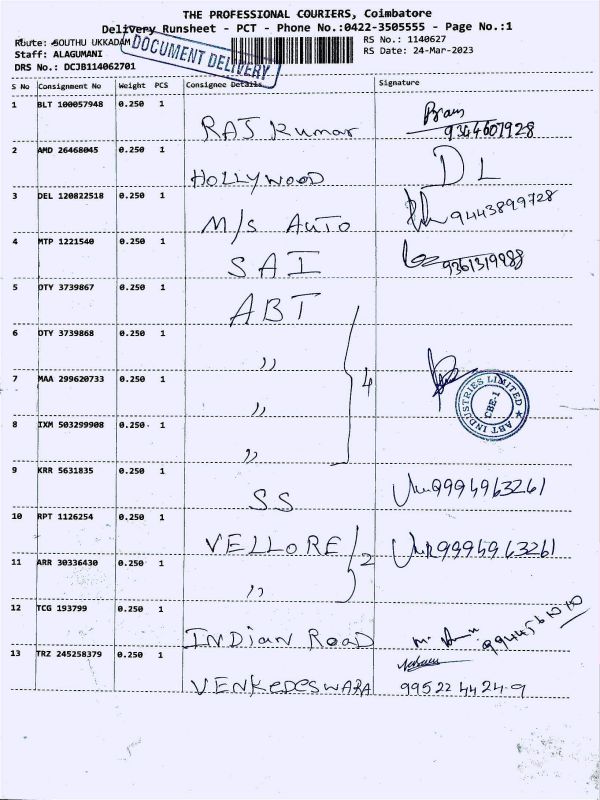 THE PROFESSIONAL COURIERS, Coimbatore
Delivery Runsheet - PCT - Phone No.:0422-3505555 - Page No.:1
Route: SOUTHU UKKADAM
RS No.: 1140627
Staff: ALAGUMANI
RS Date: 24-Mar-2023
DRS No.: DCJB114062701
DOCUMENT DELIVERY
S No Consignment No Weight PCS Consignee Details Signature
1 BLT 100057948 0.250 1
RAJ Kumar 9344607928
2 AMD 26468045 0.250 1
HOLLYWOOD DL
3 DEL 120822518 0.250 1
M/S AUTO 9443899728
4 MTP 1221540 0.250 1
SAI 9361319888
5 OTY 3739867 0.250 1
ABT
6 OTY 3739868 0.250 1
,,
7 MAA 299620733 0.250 1
,, 4
ABT INDUSTRIES LIMITED ★ CBE-1
8 IXM 503299908 0.250 1
,,
9 KRR 5631835 0.250 1
SS 9994963261
10 RPT 1126254 0.250 1
VELLORE 2 9994963261
11 ARR 30336430 0.250 1
,,
12 TCG 193799 0.250 1
INDian Road
13 TRZ 245258379 0.250 1
VENKEDESWARA 9952244249